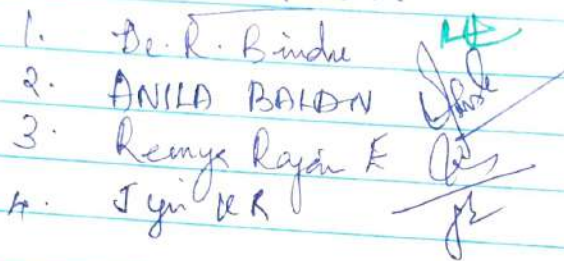 1. Dr. R. Bindu
2. ANILA BALAN
3. Remya Rajan E
4. KR